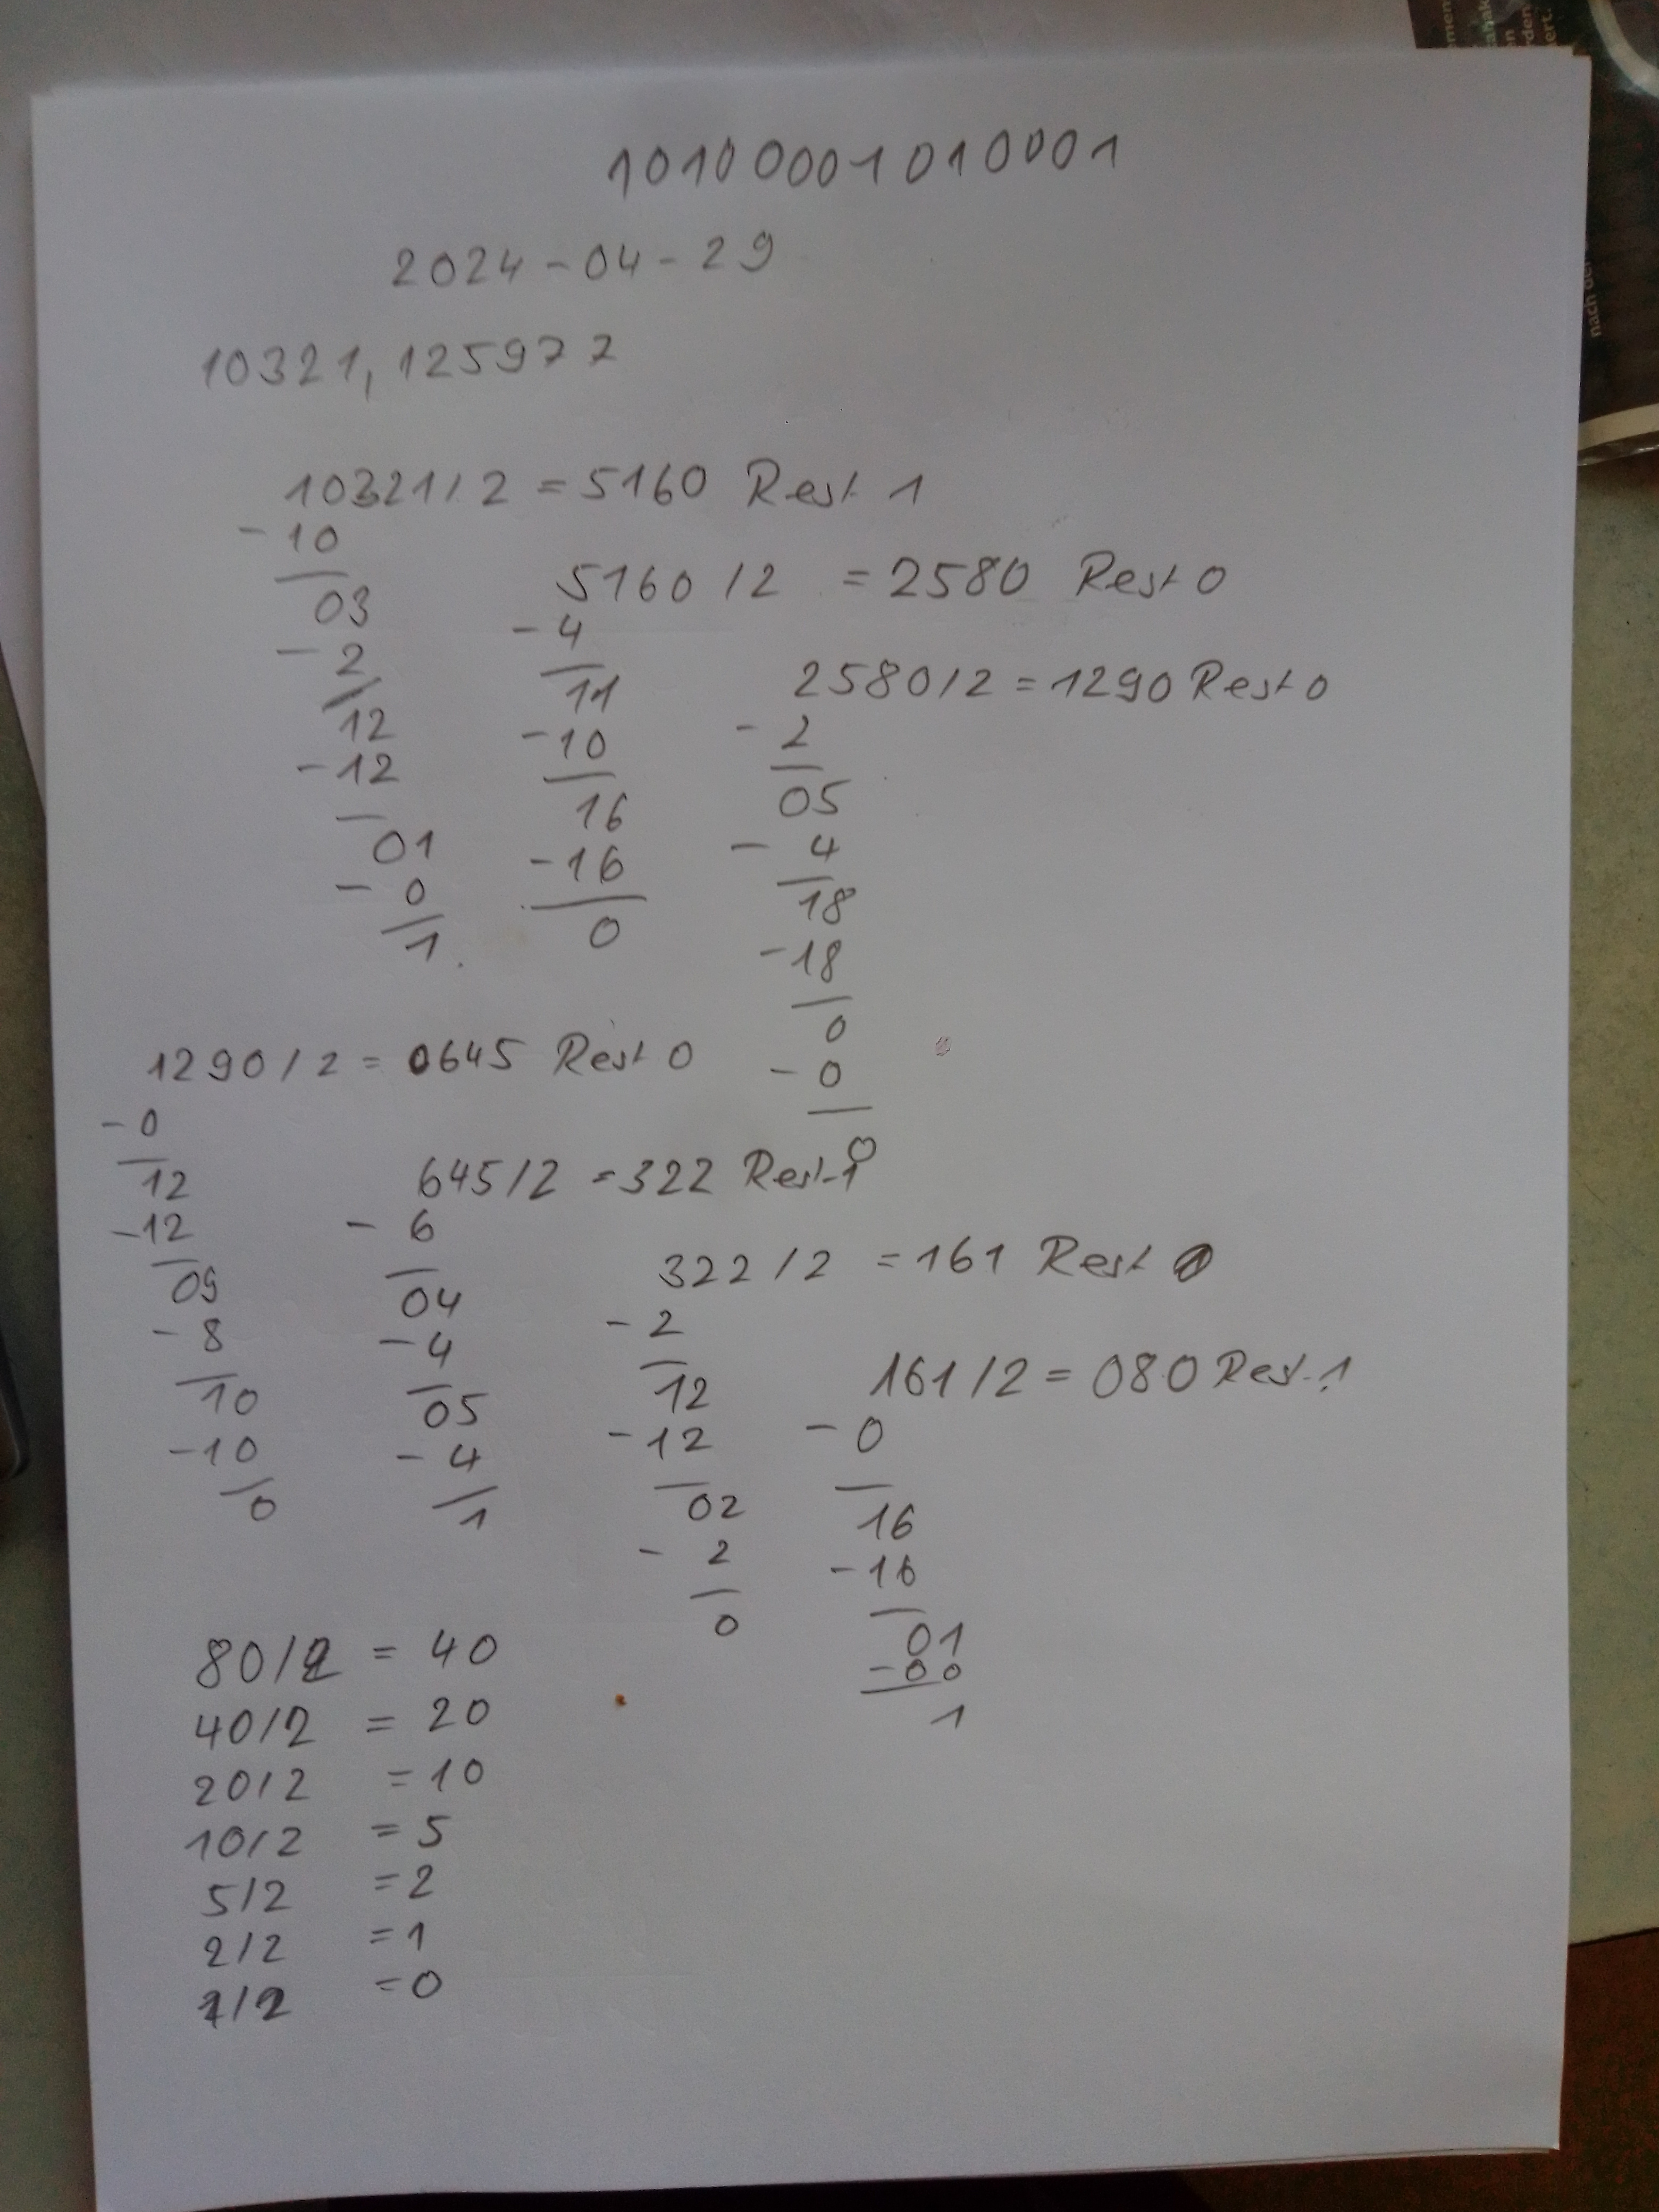 10100001010001
2024-04-29
10321,125977
10321/2 = 5160 Rest 1
-10
03
- 2
12
-12
01
- 0
1
5160 /2 = 2580 Rest 0
- 4
11
-10
16
-16
0
2580/2 = 1290 Rest 0
- 2
05
- 4
18
-18
0
- 0
0
1290/2 = 0645 Rest 0
-0
12
-12
09
- 8
10
-10
0
645/2 = 322 Rest 1
- 6
04
- 4
05
- 4
1
322/2 = 161 Rest 0
- 2
12
-12
02
- 2
0
161/2 = 080 Rest 1
- 0
16
-16
01
-00
1
80/2 = 40
40/2 = 20
20/2 = 10
10/2 = 5
5/2 = 2
2/2 = 1
1/2 = 0
nach der